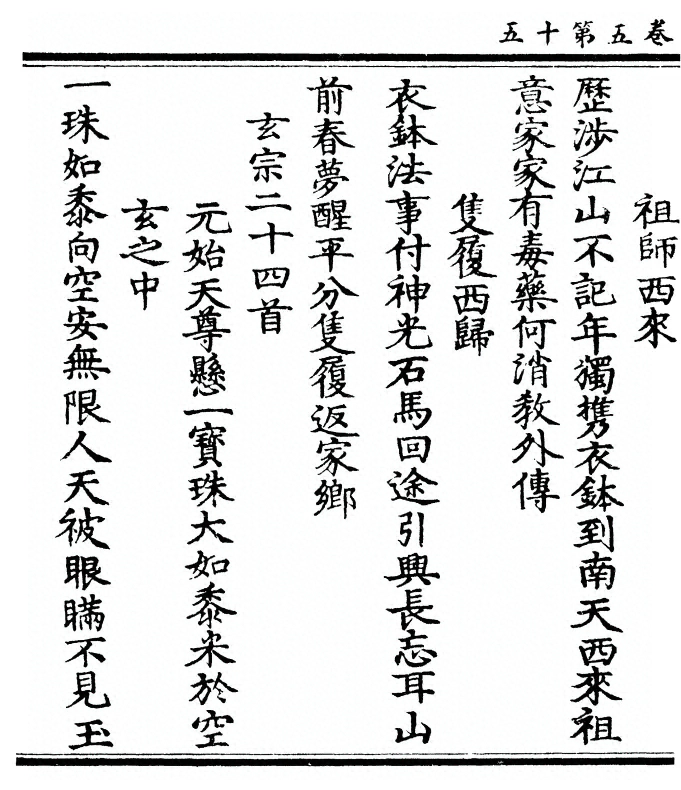 卷五第十五
祖師西來
歷涉江山不記年獨携衣鉢到南天西來祖
意家家有毒藥何消教外傳
隻履西歸
衣鉢法事付神光石馬回途引興長忘耳山
前春夢醒平分隻履返家鄉
玄宗二十四首
元始天尊懸一寶珠大如黍米於空
玄之中
一珠如黍向空安無限人天被眼瞞不見玉